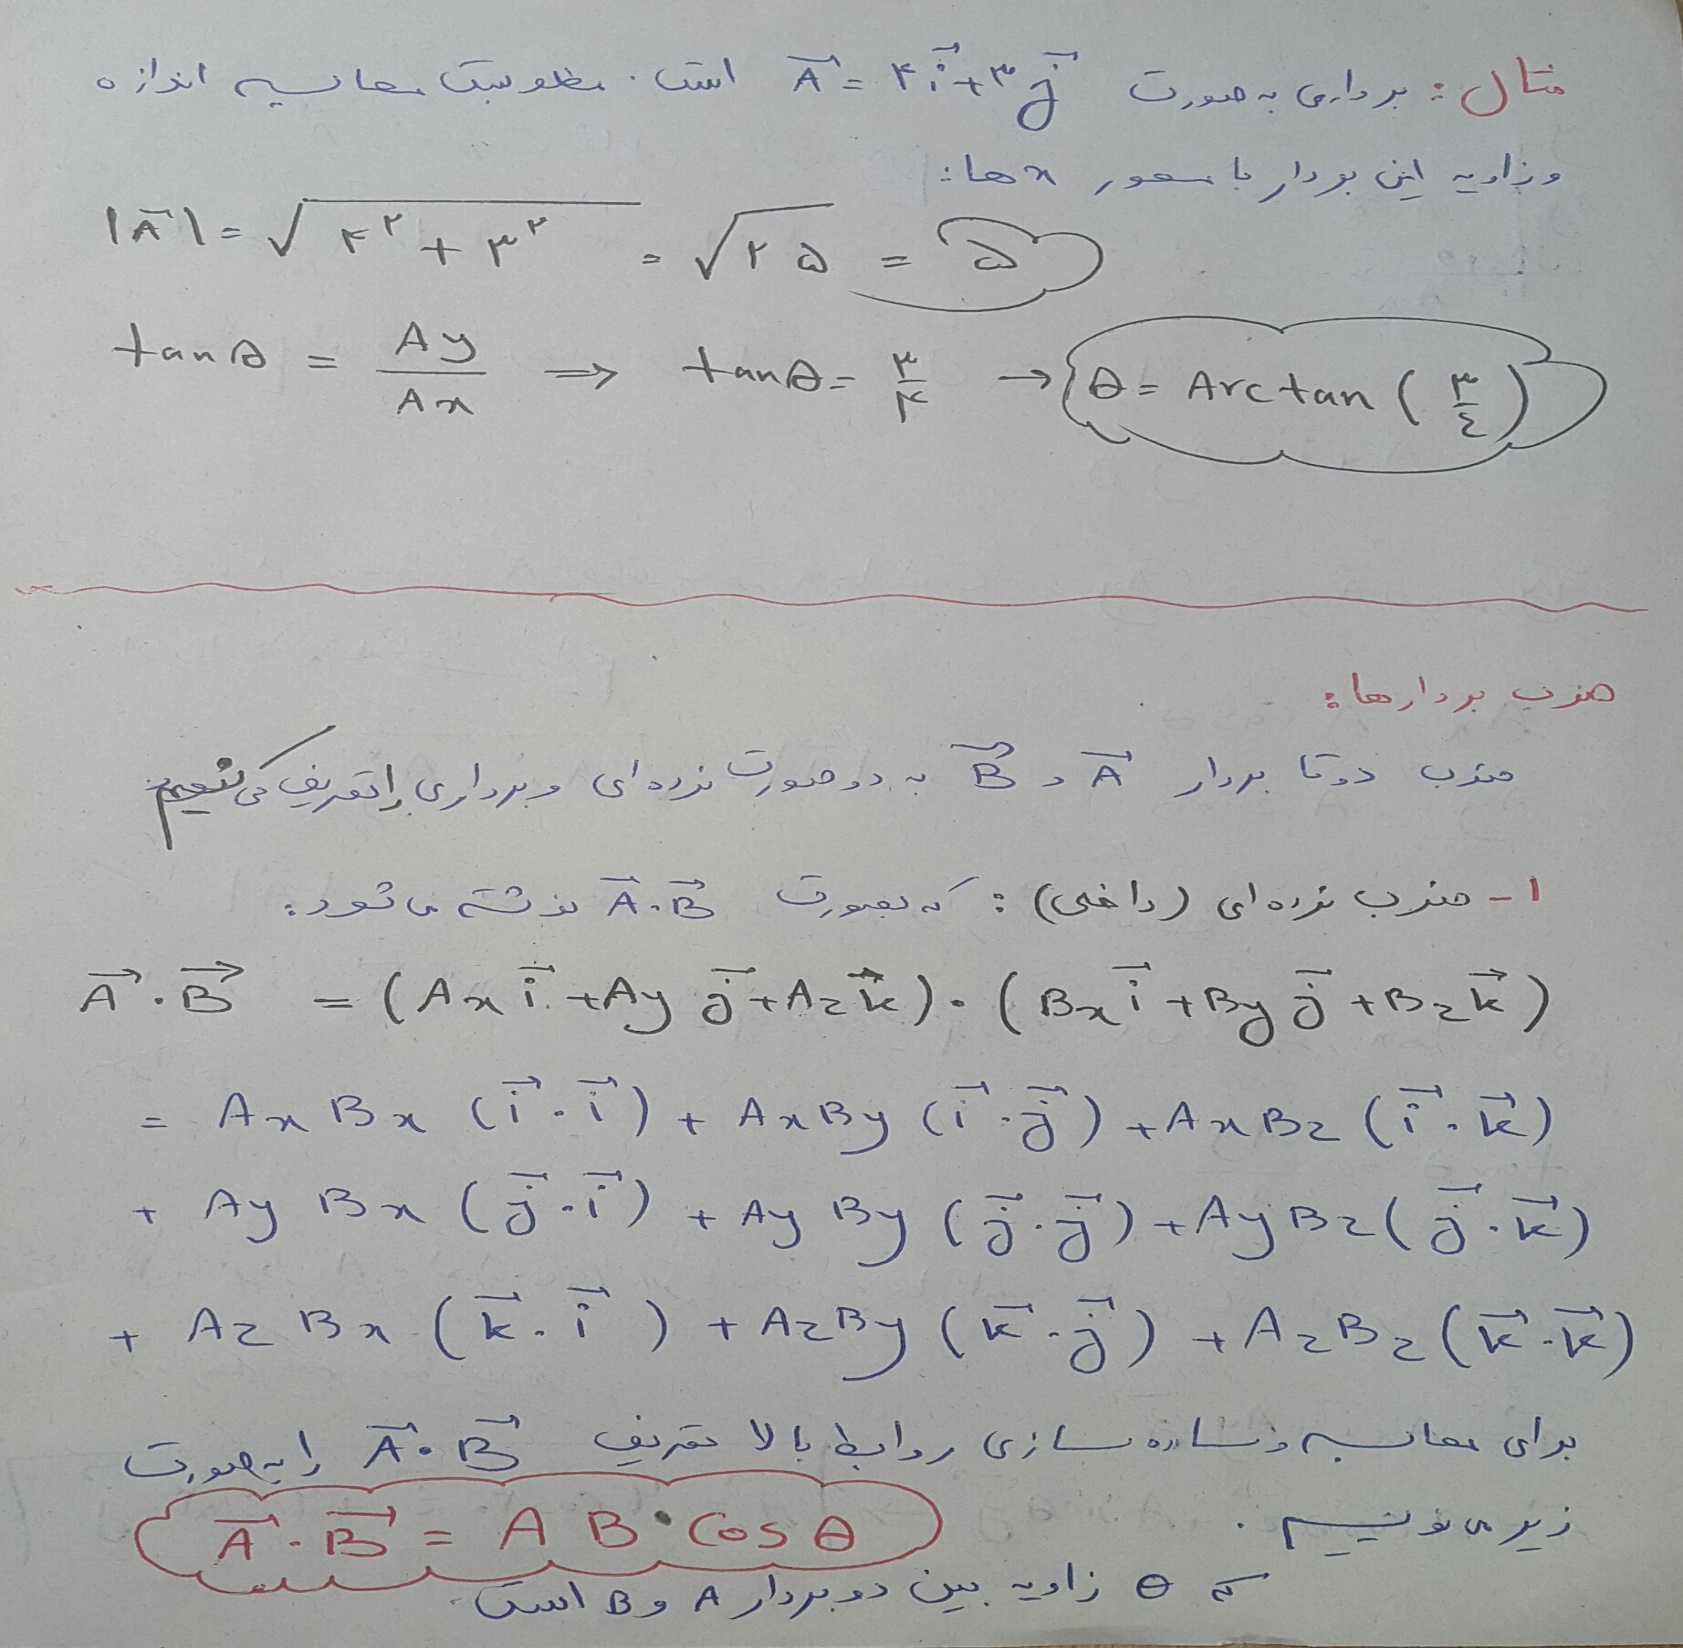 مثال : برداری به صورت A = ۴i + ۳j است . مطلوبست محاسبه اندازه
و زاویه این بردار با محور x ها :
|A| = √۴۲ + ۳۲ = √۲۵ = ۵
tanθ = Ay/Ax ⇒ tanθ = ۳/۴ → θ = Arctan (۳/٤)
ضرب بردارها :
ضرب دوتا بردار A و B به دو صورت نرده ای و برداری را تعریف می کنیم
۱ - ضرب نرده ای (داخلی) : که بصورت A.B نوشته می شود :
A . B = (Ax i + Ay j + Az k) . (Bx i + By j + Bz k)
= Ax Bx (i . i) + Ax By (i . j) + Ax Bz (i . k)
+ Ay Bx (j . i) + Ay By (j . j) + Ay Bz (j . k)
+ Az Bx (k . i) + Az By (k . j) + Az Bz (k . k)
برای محاسبه و ساده سازی روابط بالا تعریف A . B را به صورت
زیر می نویسیم .
A . B = A B . Cos θ
که θ زاویه بین دو بردار A و B است .